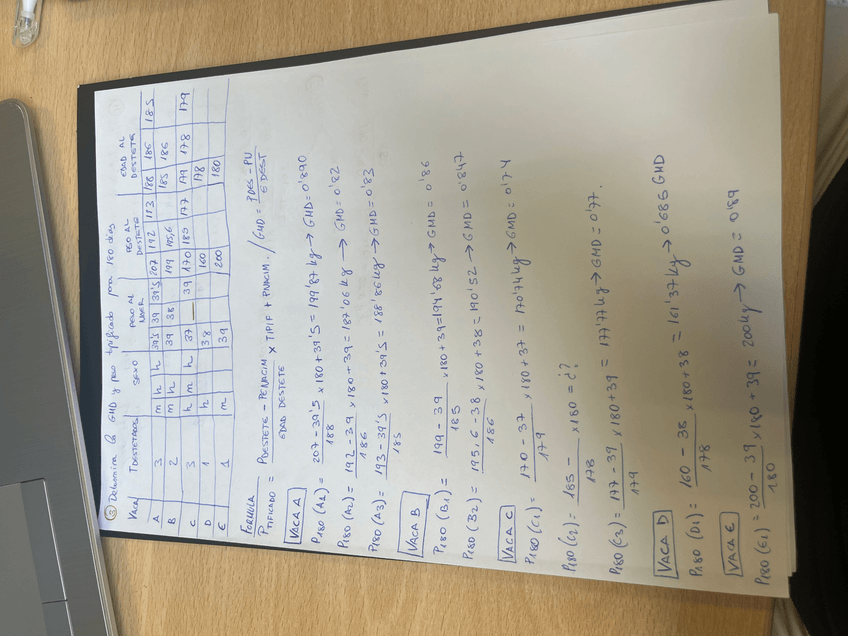 ③ Determina la GMD y peso tipificado para 180 días
VACA T DESTETADOS SEXO PESO AL NACER PESO AL DESTETE EDAD AL DESTETE
A 3 m h h 39'5 39 39'5 207 192 193 188 186 185
B 2 m h 39 38 199 195,6 185 186
C 3 h m h 37 — 39 170 185 177 179 178 179
D 1 h 38 160 178
E 1 m 39 200 180
FÓRMULA
PTIFICADO = PDESTETE - PENACIM / EDAD DESTETE × TIPIF + PNACIM. / GMD = PDES - PN / E DEST
VACA A
P180 (A1) = 207 - 39'5 / 188 ×180 + 39'5 = 199'87 kg → GMD = 0'890
P180 (A2) = 192 - 39 / 186 ×180 + 39 = 187'06 kg → GMD = 0'82
P180 (A3) = 193 - 39'5 / 185 ×180 + 39'5 = 188'86 kg → GMD = 0'83
VACA B
P180 (B1) = 199 - 39 / 185 ×180 + 39 = 194'68 kg → GMD = 0'86
P180 (B2) = 195.6 - 38 / 186 ×180 + 38 = 190'52 → GMD = 0'847
VACA C
P180 (C1) = 170 - 37 / 179 ×180 + 37 = 170'74 kg → GMD = 0'74
P180 (C2) = 185 - / 178 ×180 = ¿?
P180 (C3) = 177 - 39 / 179 ×180 + 39 = 177'77 kg → GMD = 0'77.
VACA D
P180 (D1) = 160 - 38 / 178 ×180 + 38 = 161'37 kg → 0'685 GMD
VACA E
P180 (E1) = 200 - 39 / 180 ×180 + 39 = 200 kg → GMD = 0'89